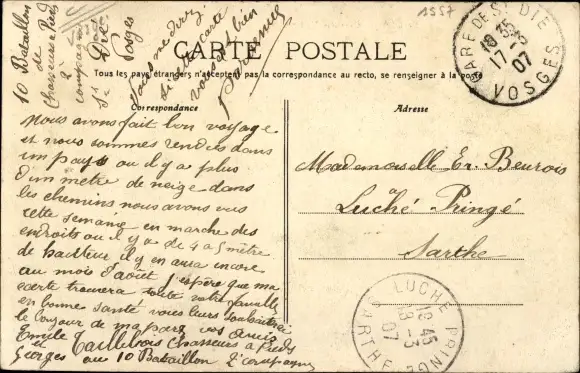 10 Bataillon
de
Chasseurs a Pieds
2
compagnie
St Dié
Vosges
vous me direz
si cette carte
vous est bien
parvenue
1557
CARTE POSTALE
Tous les pays étrangers n'acceptent pas la correspondance au recto, se renseigner à la poste
GARE DE ST DIÉ
VOSGES
17 -3
07
Correspondance
Adresse
Nous avons fait bon voyage
et nous sommes rendus dans
un pays ou il y a plus
d'un metre de neige dans
les chemins nous avons vus
cette semaine en marche des
endroits ou il y a de 4 a 5 mètre
de hauteur il y en aura encore
au mois d'aout j'espère que ma
carte trouvera toute votre famille
en bonne santé vous leurs souhaiterez
le bonjour de ma part vos amis
Emile Taillebois Chasseurs à Pieds
et
Georges au 10 Bataillon 2 compagnie
Mademoiselle Er. Beurois
a
Luché Pringé
Sarthe
LUCHÉ PRINGÉ
12 45
18 -3
07
SARTHE